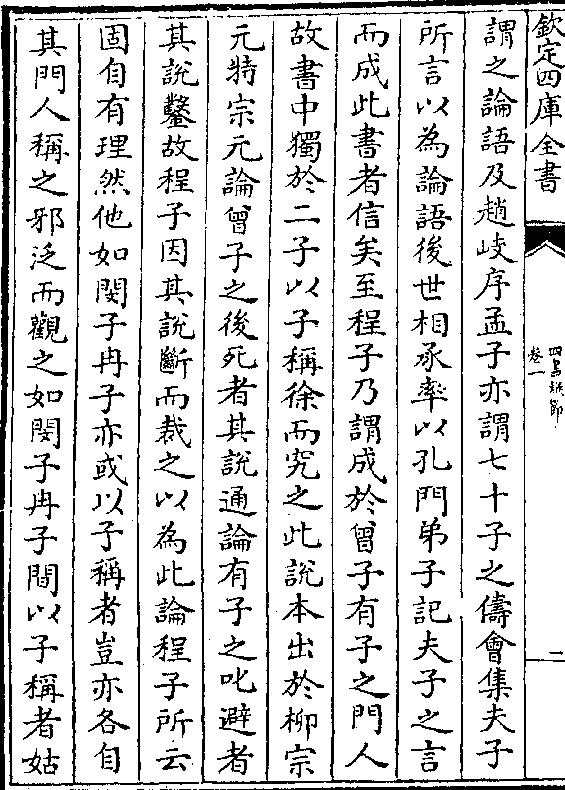 欽定四庫全書
四書纂節
卷一
二
謂之論語及趙岐序孟子亦謂七十子之儔會集夫子
所言以為論語後世相承率以孔門弟子記夫子之言
而成此書者信矣至程子乃謂成於曾子有子之門人
故書中獨於二子以子稱徐而究之此說本出於柳宗
元特宗元論曾子之後死者其說通論有子之叱避者
其說鑿故程子因其說斷而裁之以為此論程子所云
固自有理然他如閔子冉子亦或以子稱者豈亦各自
其門人稱之邪泛而觀之如閔子冉子間以子稱者姑